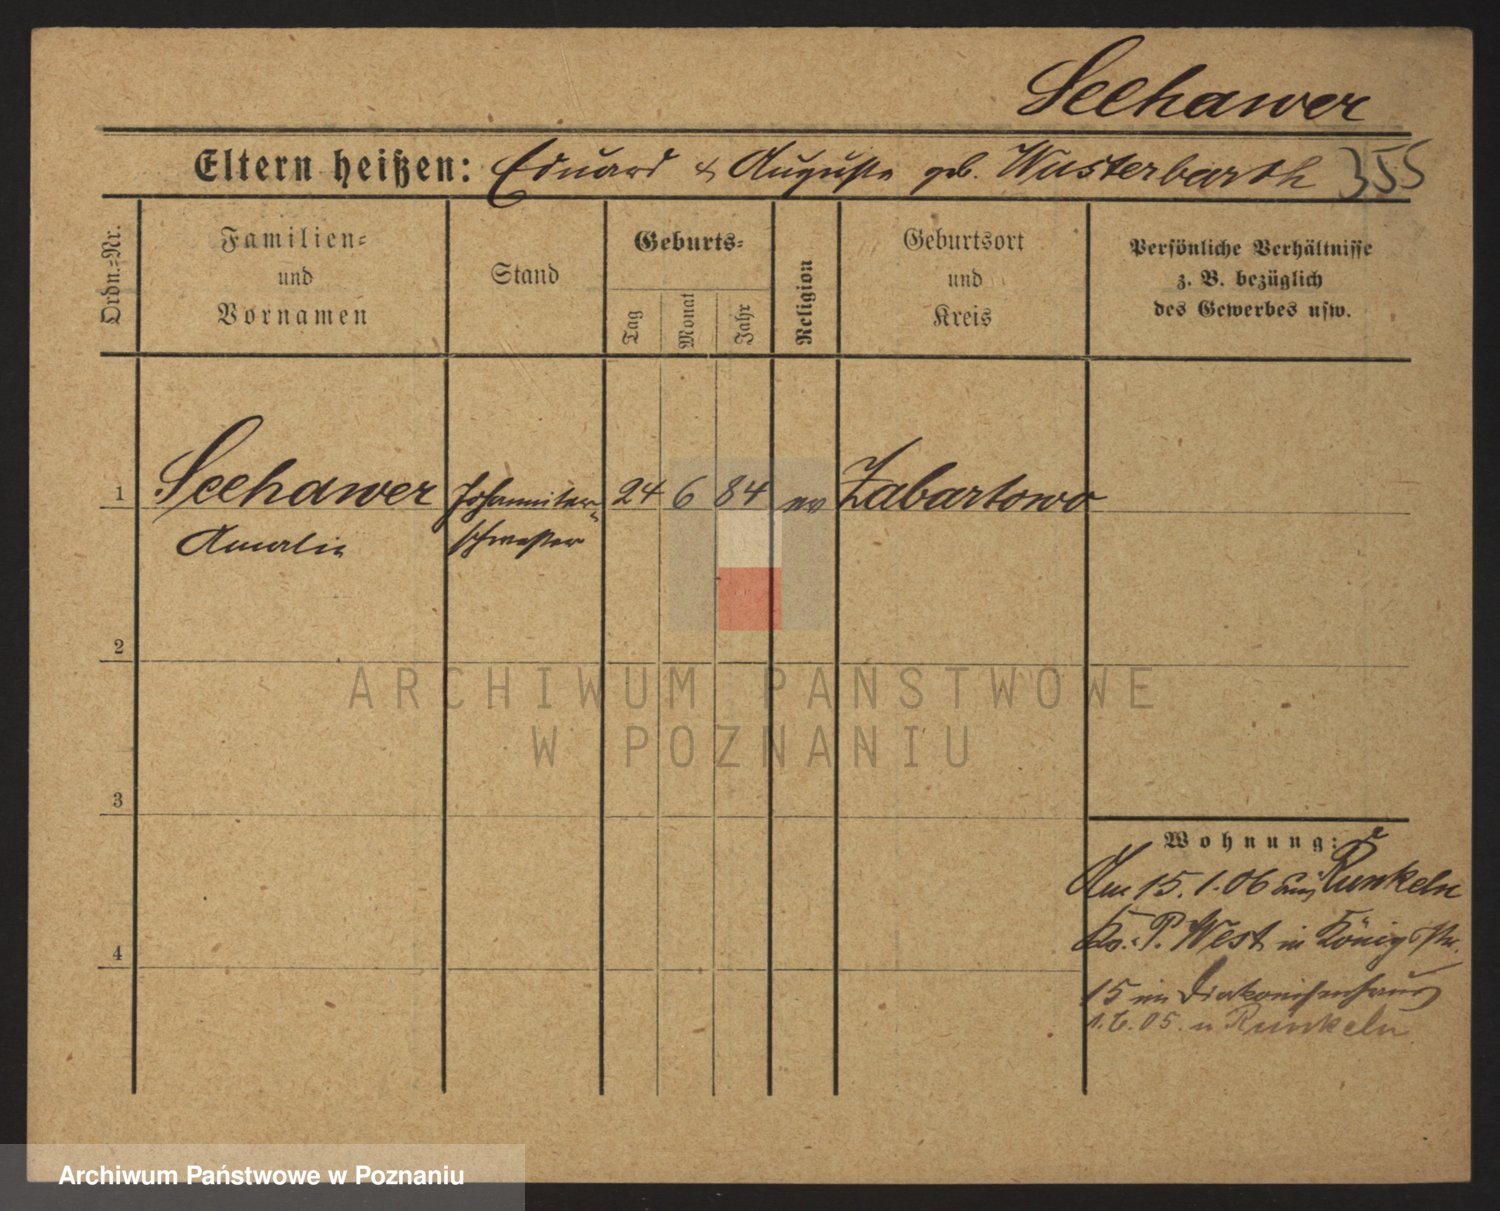 Seehawer
Eltern heißen: Eduard & Auguste geb. Wusterbarth 355
Ordn.-Nr.
Familien-
und
Vornamen
Stand
Geburts-
Tag
Monat
Jahr
Religion
Geburtsort
und
Kreis
Persönliche Verhältnisse
z. B. bezüglich
des Gewerbes usw.
1 Seehawer Johanniter- 24 6 84 ev Zabartowo
Amalie schwester
2
3
4
Wohnung:
Am 15.1.06 aus Runkeln
P. West in Königstr.
15 im Diakonissenhaus
05. n Runkeln
ARCHIWUM PAŃSTWOWE
W POZNANIU
Archiwum Państwowe w Poznaniu